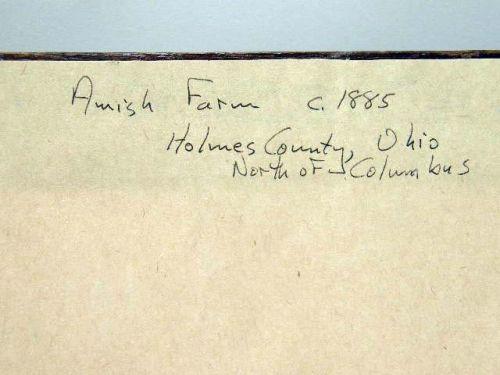 Amish Farm c. 1885
Holmes County, Ohio
North of Columbus